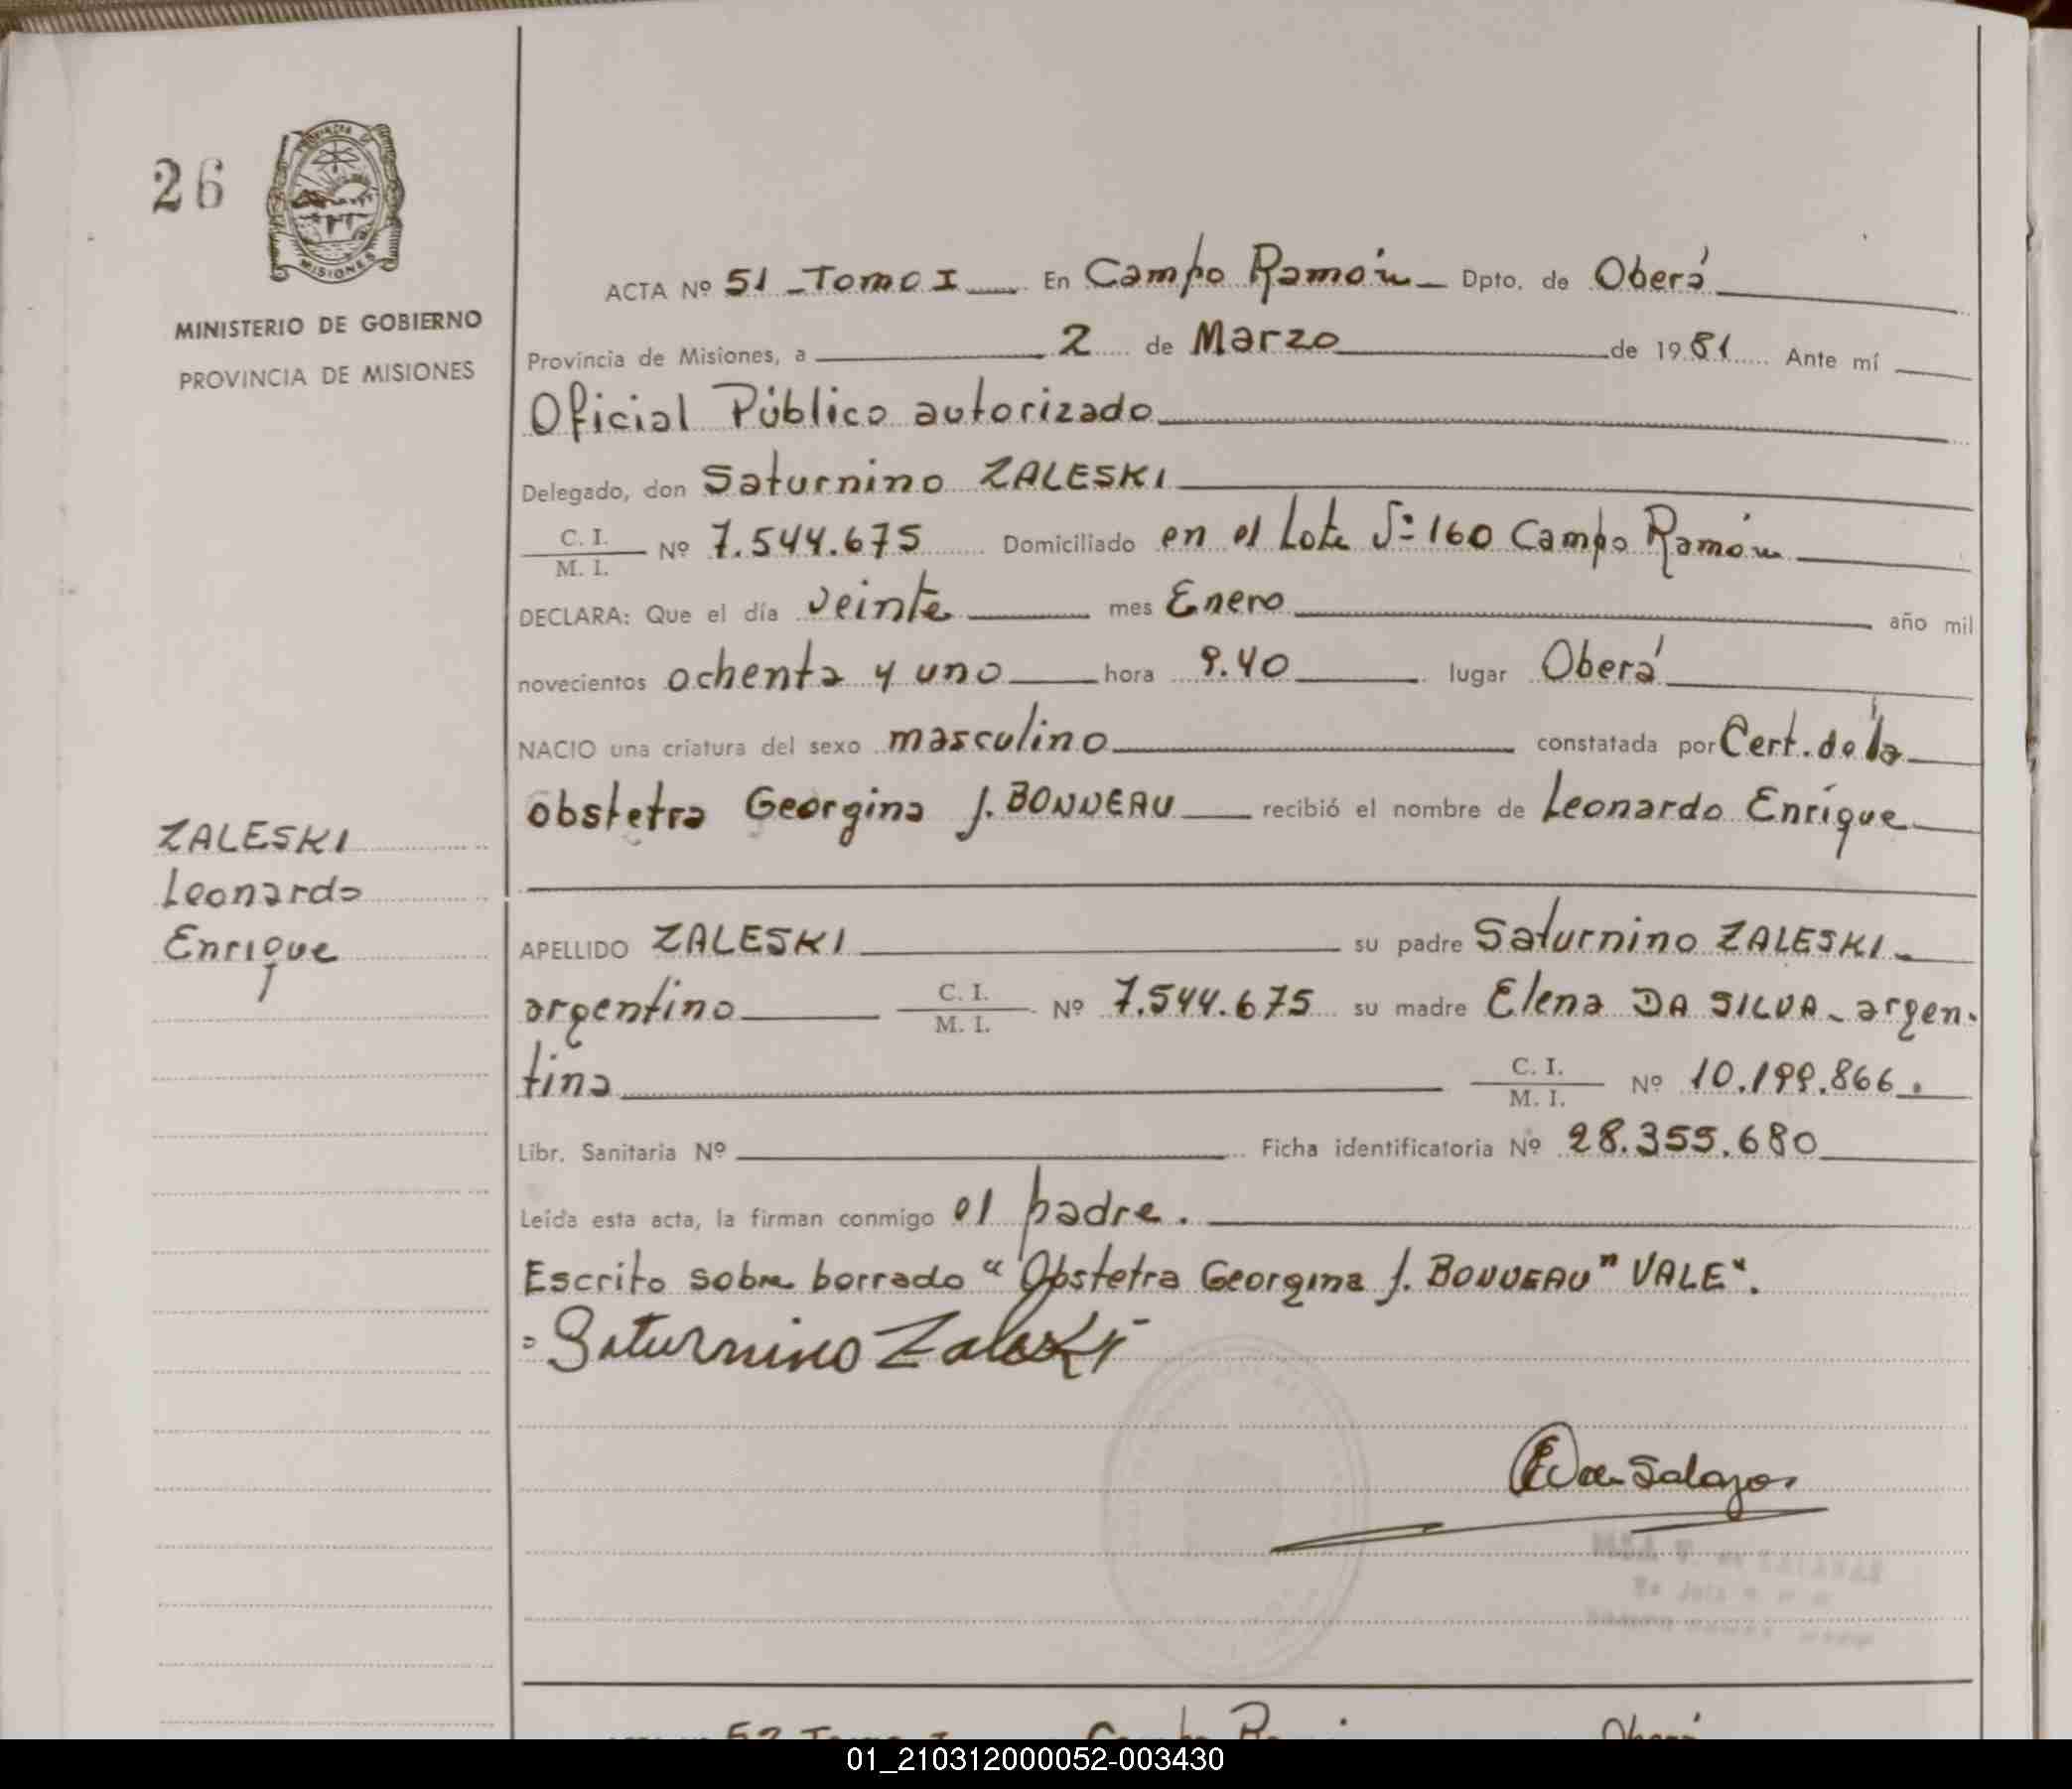 26
MISIONES
MINISTERIO DE GOBIERNO
PROVINCIA DE MISIONES
ZALESKI
Leonardo
Enrique
ACTA Nº 51 - Tomo I En Campo Ramón Dpto. de Oberá
Provincia de Misiones, a 2 de Marzo de 1981 Ante mí
Oficial Público autorizado
Delegado, don Saturnino ZALESKI
C. I. / M. I. Nº 7.544.675 Domiciliado en el Lote Nº 160 Campo Ramón
DECLARA: Que el día veinte mes Enero año mil
novecientos ochenta y uno hora 9.40 lugar Oberá
NACIO una criatura del sexo masculino constatada por Cert. de la
obstetra Georgina J. BONNEAU recibió el nombre de Leonardo Enrique
APELLIDO ZALESKI su padre Saturnino ZALESKI
argentino C. I. / M. I. Nº 7.544.675 su madre Elena DA SILVA - argen-
tina C. I. / M. I. Nº 10.199.866.
Libr. Sanitaria Nº Ficha identificatoria Nº 28.355.680
Leída esta acta, la firman conmigo el padre.
Escrito sobre borrado "Obstetra Georgina J. BONNEAU" VALE".
Saturnino Zaleski
de Salazar
52 Tomo I
01_210312000052-003430